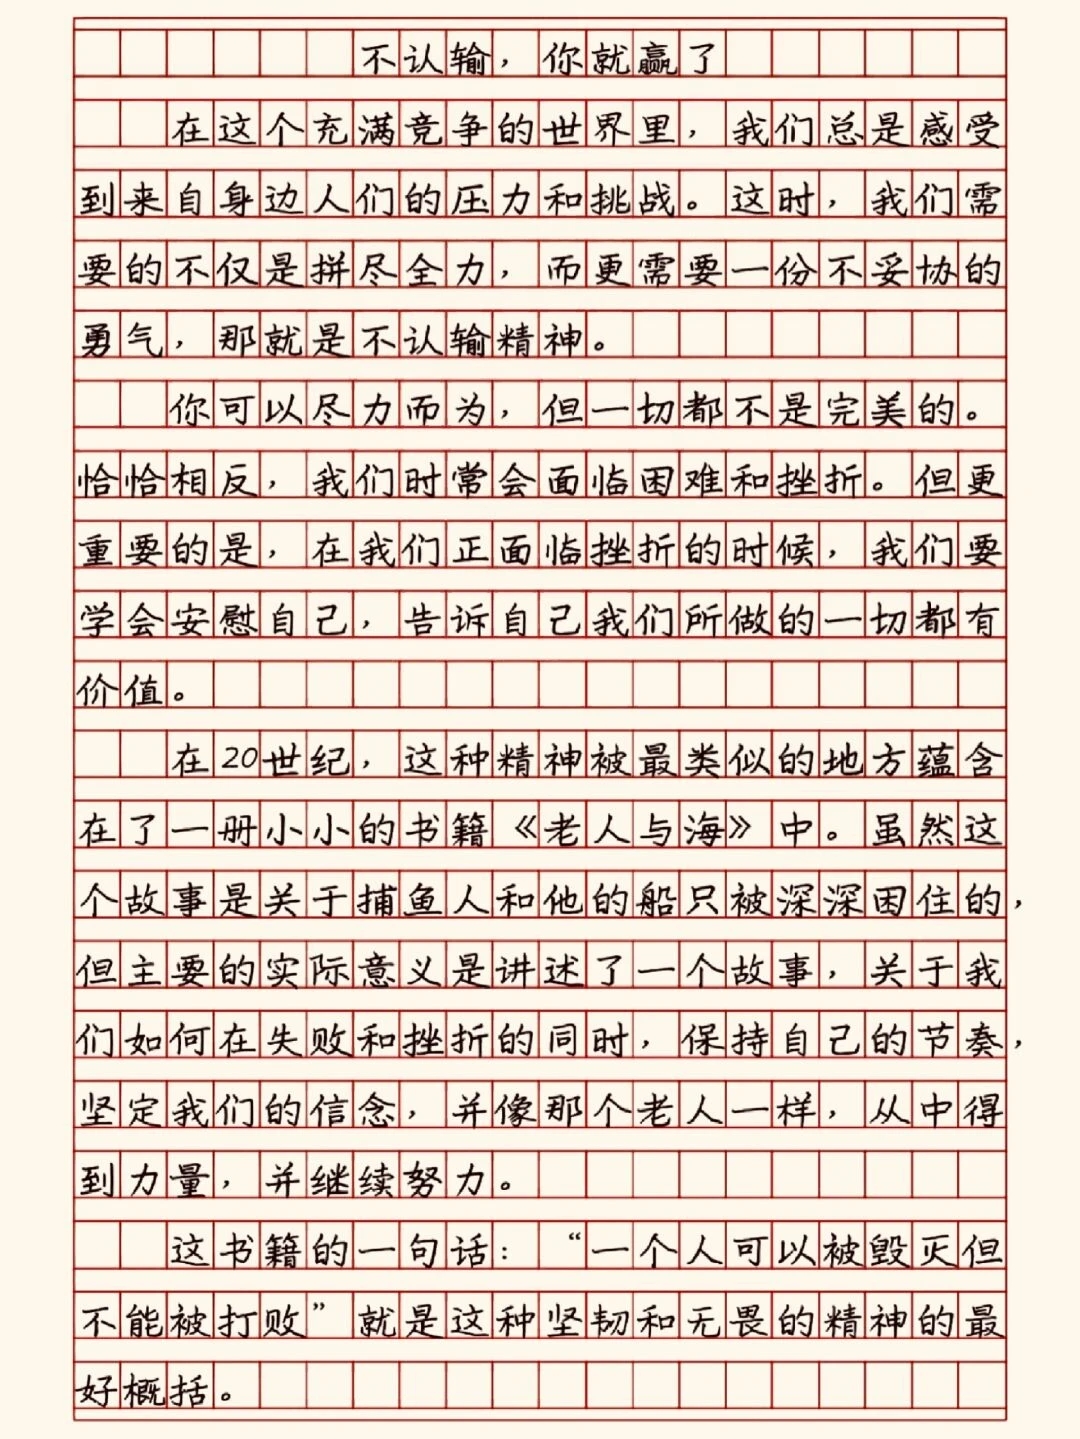 不认输，你就赢了
在这个充满竞争的世界里，我们总是感受
到来自身边人们的压力和挑战。这时，我们需
要的不仅是拼尽全力，而更需要一份不妥协的
勇气，那就是不认输精神。
你可以尽力而为，但一切都不是完美的。
恰恰相反，我们时常会面临困难和挫折。但更
重要的是，在我们正面临挫折的时候，我们要
学会安慰自己，告诉自己我们所做的一切都有
价值。
在20世纪，这种精神被最类似的地方蕴含
在了一册小小的书籍《老人与海》中。虽然这
个故事是关于捕鱼人和他的船只被深深困住的，
但主要的实际意义是讲述了一个故事，关于我
们如何在失败和挫折的同时，保持自己的节奏，
坚定我们的信念，并像那个老人一样，从中得
到力量，并继续努力。
这书籍的一句话：“一个人可以被毁灭但
不能被打败”就是这种坚韧和无畏的精神的最
好概括。